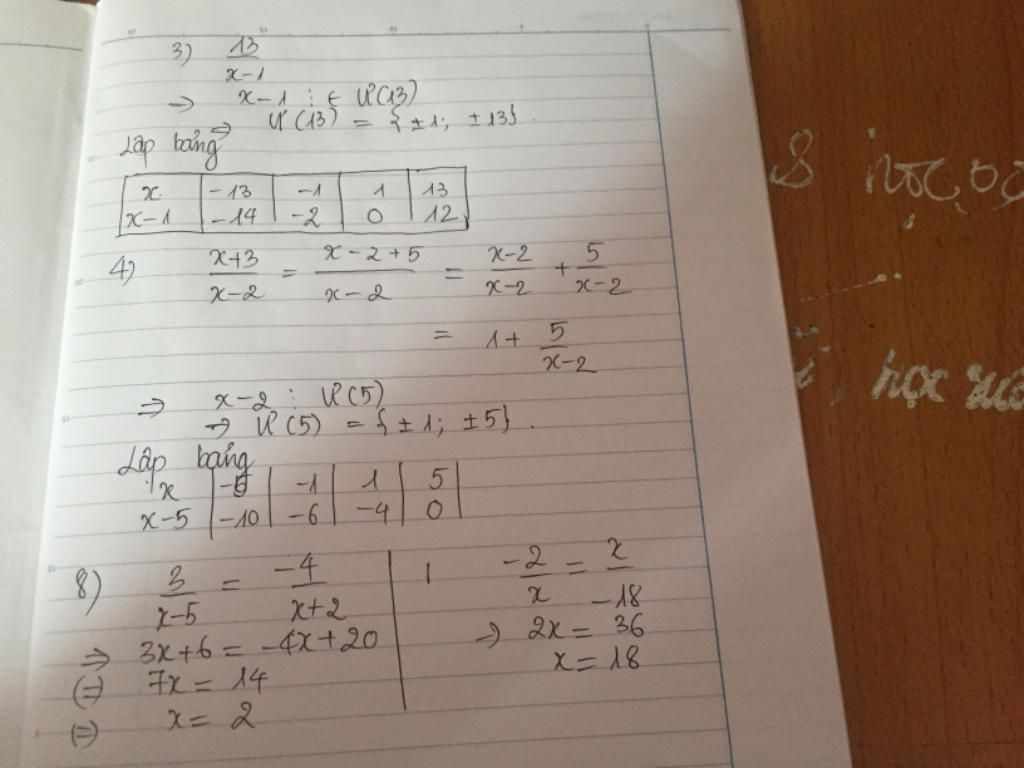 3) 13/(x-1)
→ x-1 ∈ Ư(13)
⇒ Ư(13) = {±1; ±13}.
Lập bảng
x | -13 | -1 | 1 | 13
x-1 | -14 | -2 | 0 | 12
4) (x+3)/(x-2) = (x-2+5)/(x-2) = (x-2)/(x-2) + 5/(x-2)
= 1 + 5/(x-2)
⇒ x-2 : Ư(5)
→ Ư(5) = {±1; ±5}.
Lập bảng
x | -5 | -1 | 1 | 5
x-5 | -10 | -6 | -4 | 0
8) 3/(x-5) = -4/(x+2)
⇒ 3x+6 = -4x+20
(=) 7x = 14
(=) x = 2
-2/x = x/-18
→ 2x = 36
x = 18
học
học